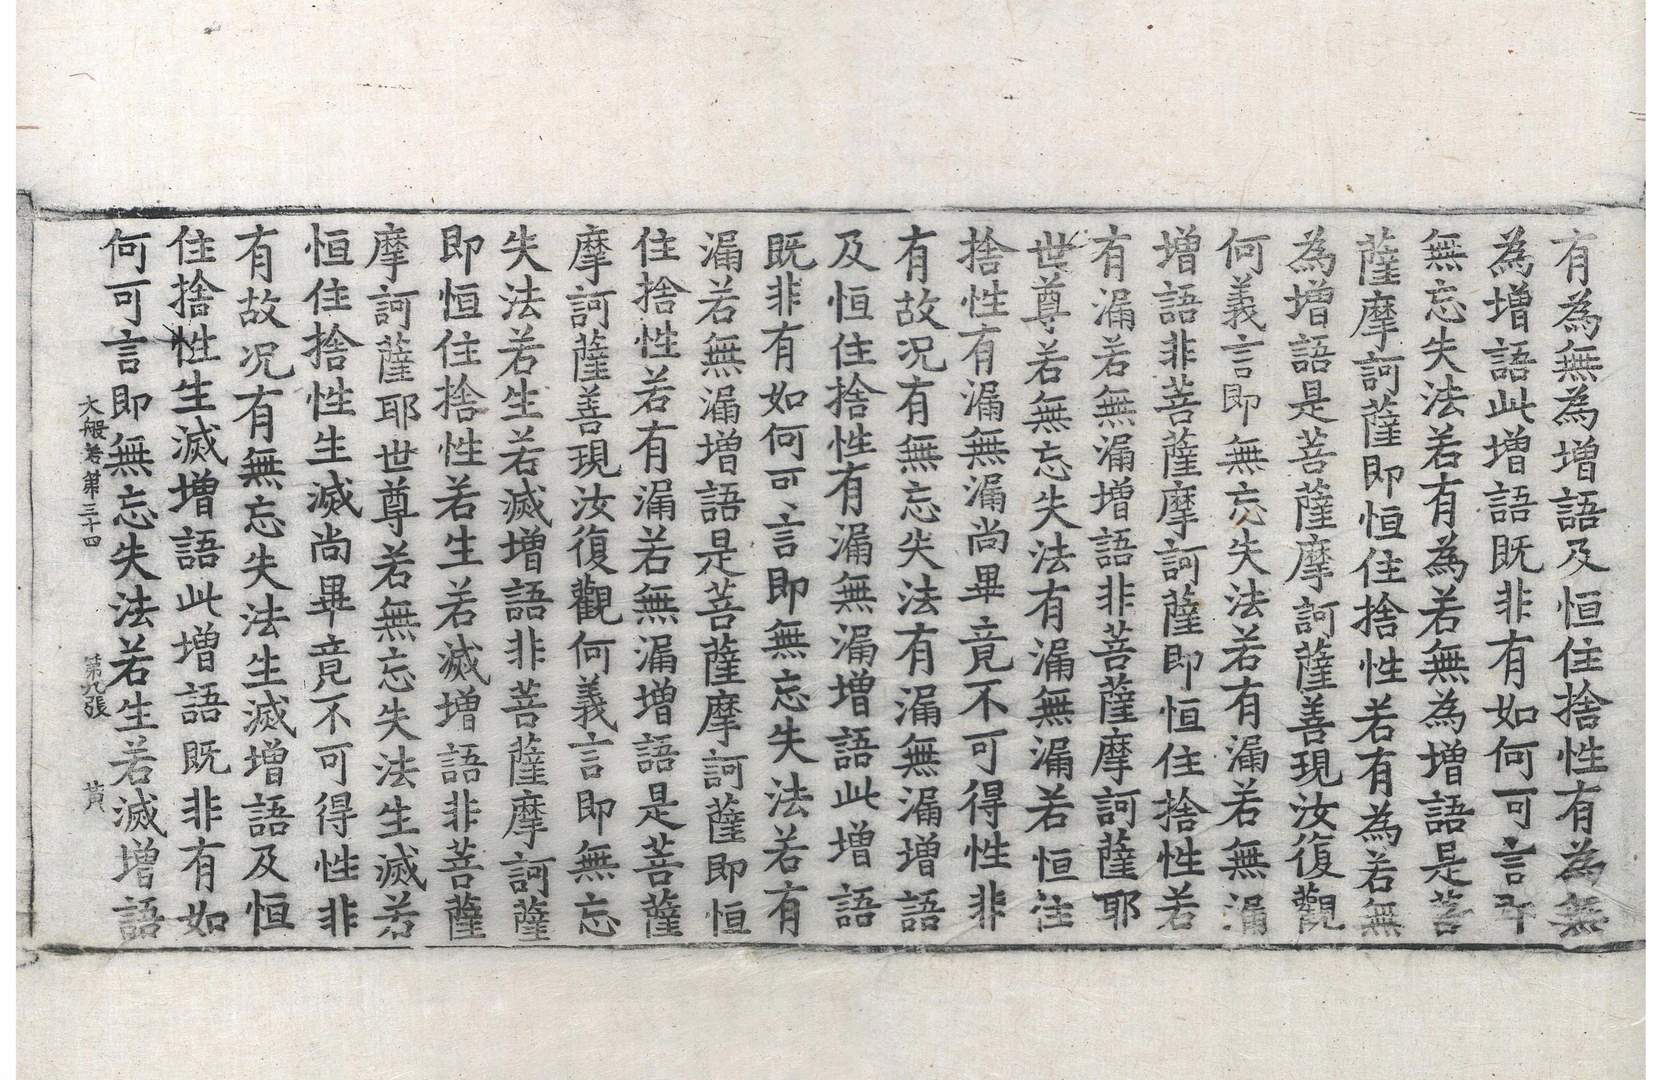 有為無為增語及恒住捨性有為無
為增語此增語既非有如何可言即
無忘失法若有為若無為增語是菩
薩摩訶薩即恒住捨性若有為若無
為增語是菩薩摩訶薩善現汝復觀
何義言即無忘失法若有漏若無漏
增語非菩薩摩訶薩即恒住捨性若
有漏若無漏增語非菩薩摩訶薩耶
世尊若無忘失法有漏無漏若恒住
捨性有漏無漏尚畢竟不可得性非
有故况有無忘失法有漏無漏增語
及恒住捨性有漏無漏增語此增語
既非有如何可言即無忘失法若有
漏若無漏增語是菩薩摩訶薩即恒
住捨性若有漏若無漏增語是菩薩
摩訶薩善現汝復觀何義言即無忘
失法若生若滅增語非菩薩摩訶薩
即恒住捨性若生若滅增語非菩薩
摩訶薩耶世尊若無忘失法生滅若
恒住捨性生滅尚畢竟不可得性非
有故况有無忘失法生滅增語及恒
住捨性生滅增語此增語既非有如
何可言即無忘失法若生若滅增語
大般若第三十四 第九張 黃